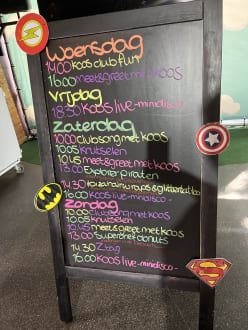 Woensdag
14.00 Koos club fun
16.00 meet&greet met KOOS
Vrijdag
18.30 KOOS live-minidisco-
Zaterdag
10.00 clubsong met koos
10.15 knutselen
10.45 meet&greet met koos
13.00 Explorer piraten
14.30 & glittertattoo
16.00 KOOS live-minidisco-
Zondag
10.00 clubsong met koos
10.15 knutselen
10.45 meet&greet met koos
13.00 Superchef donuts
14.30
16.00 KOOS live-minidisco-